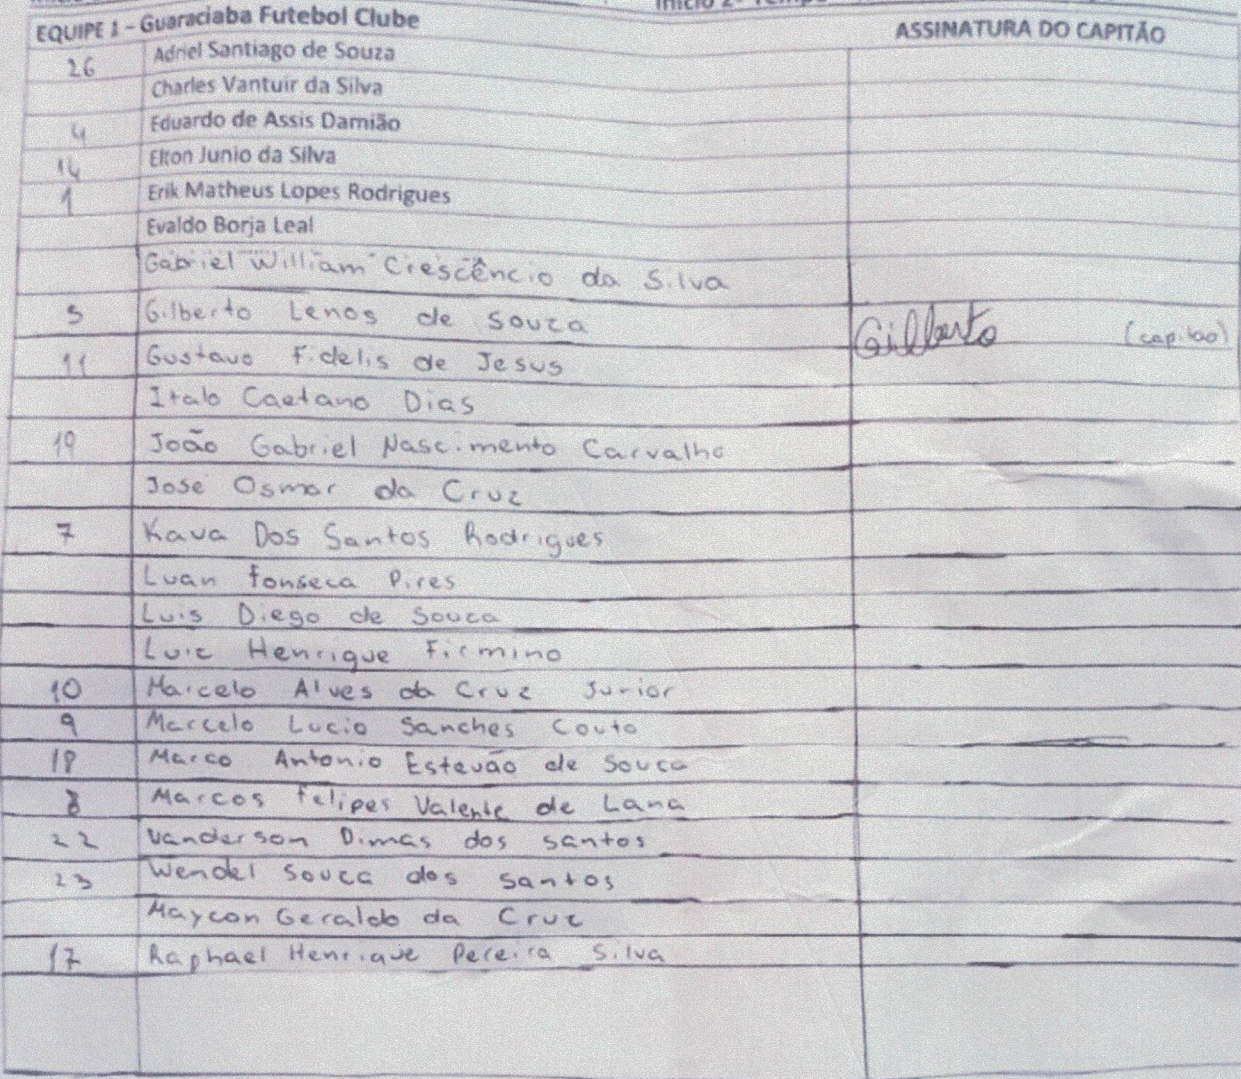 EQUIPE 1 - Guaraciaba Futebol Clube ASSINATURA DO CAPITÃO
26 Adriel Santiago de Souza
Charles Vantuir da Silva
4 Eduardo de Assis Damião
14 Elton Junio da Silva
1 Erik Matheus Lopes Rodrigues
Evaldo Borja Leal
Gabriel William Crescêncio da Silva
5 Gilberto Lenos de Souza Gilberto (capitao)
11 Gustavo Fidelis de Jesus
Italo Caetano Dias
19 João Gabriel Nascimento Carvalho
Jose Osmar da Cruz
7 Kava Dos Santos Rodrigues
Luan fonseca Pires
Luis Diego de Souza
Luiz Henrique Firmino
10 Marcelo Alves da Cruz Junior
9 Marcelo Lucio Sanches Couto
18 Marco Antonio Estevão de Souza
8 Marcos felipes Valente de Lana
22 Vanderson Dimas dos santos
23 Wendel Souza dos santos
Maycon Geraldo da Cruz
17 Raphael Henrique Pereira Silva